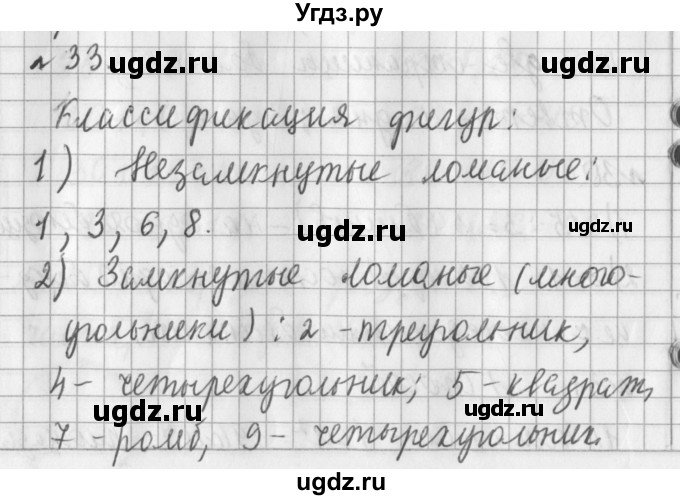 Угдз.ру
№ 33 ugdz.ru ugdz.ru
Классификация фигур:
1) Незамкнутые ломаные:
1, 3, 6, 8. ugdz.ru ugdz.ru
2) Замкнутые ломаные (много-
угольники): 2 - треугольник,
4 - четырехугольник; 5 - квадрат,
ugdz.ru ugdz.ru
7 - ромб, 9 - четырехугольник.
ugdz.ru ugdz.ru